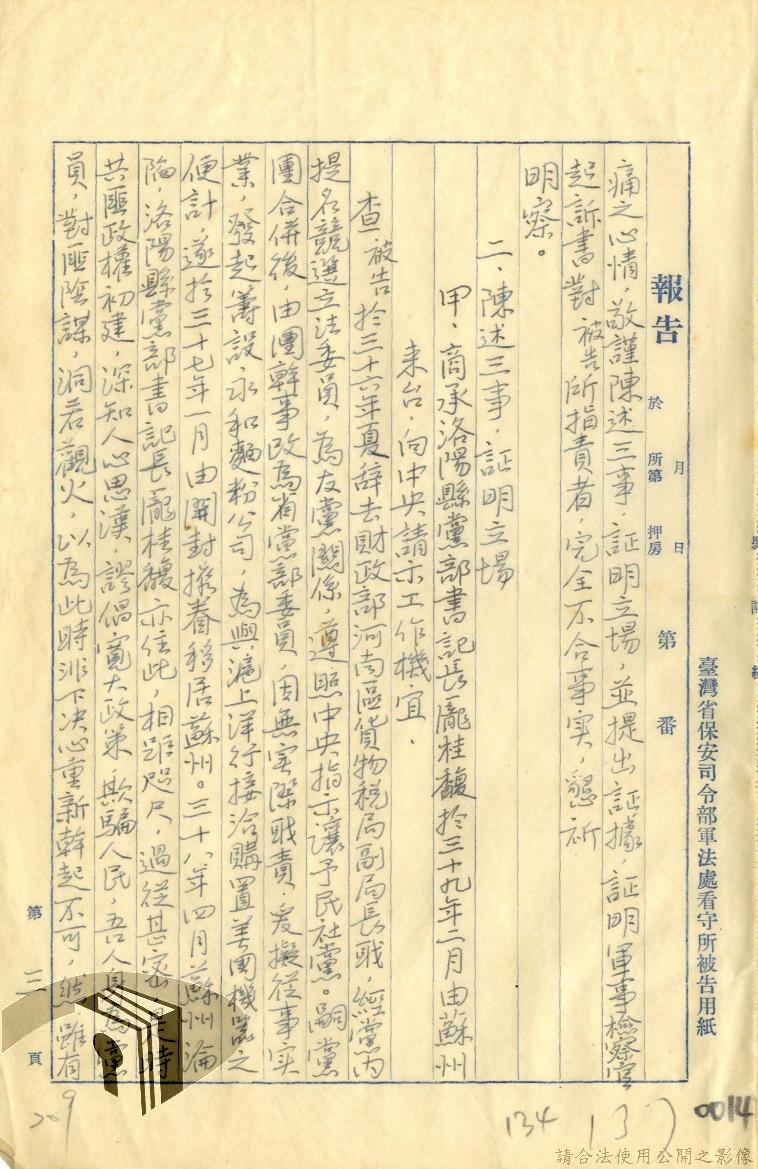 臺灣省保安司令部軍法處看守所被告用紙
報告
於 月 日
所第 押房
第 番
痛之心情，敬謹陳述三事，証明立場，並提出証據，証明軍事檢察官
起訴書對被告所指責者，完全不合事实，懇祈
明察。
二、陳述三事，証明立場
甲、商承洛陽縣黨部書記長龐桂馥於三十九年二月由蘇州
来台，向中央請示工作機宜．
查被告於三十六年夏辞去財政部河南區貨物税局副局長職，經黨內
提名競選立法委員，為友黨關係，遵照中央指示讓予民社黨。嗣黨
團合併後，由團幹事改為省黨部委員，因無实際职責，爰擬從事实
業，發起籌設永和麵粉公司，為與滬上洋行接洽購置美國機器之
便計，遂於三十七年一月由開封携眷移居蘇州。三十八年四月蘇州淪
陷，洛陽縣黨部書記長龐桂馥亦住此，相距咫尺，過從甚密，是時
共匪政權初建，深知人心思漢，謬倡寬大政策，欺騙人民，吾人身為黨
員，對匪陰謀，洞若觀火，以為此時非下决心重新幹起不可，然雖有
第 三 頁
209
134
137
0014
請合法使用公開之影像